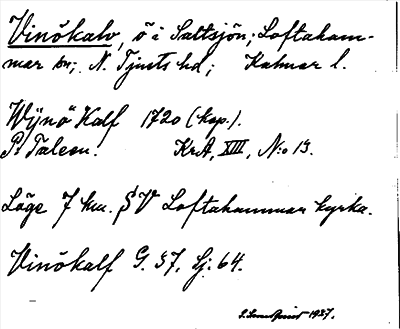 Vinökalv, ö i Saltsjön; Loftaham-
mar sn; N. Tjusts hd; Kalmar l.
Wijnö Kalf 1720 (kop.).
P. KrA, XIII, N:o 13.
Läge 7 km. SV Loftahammar kyrka.
Vinökalf G. 57, Lj. 64.
1927.